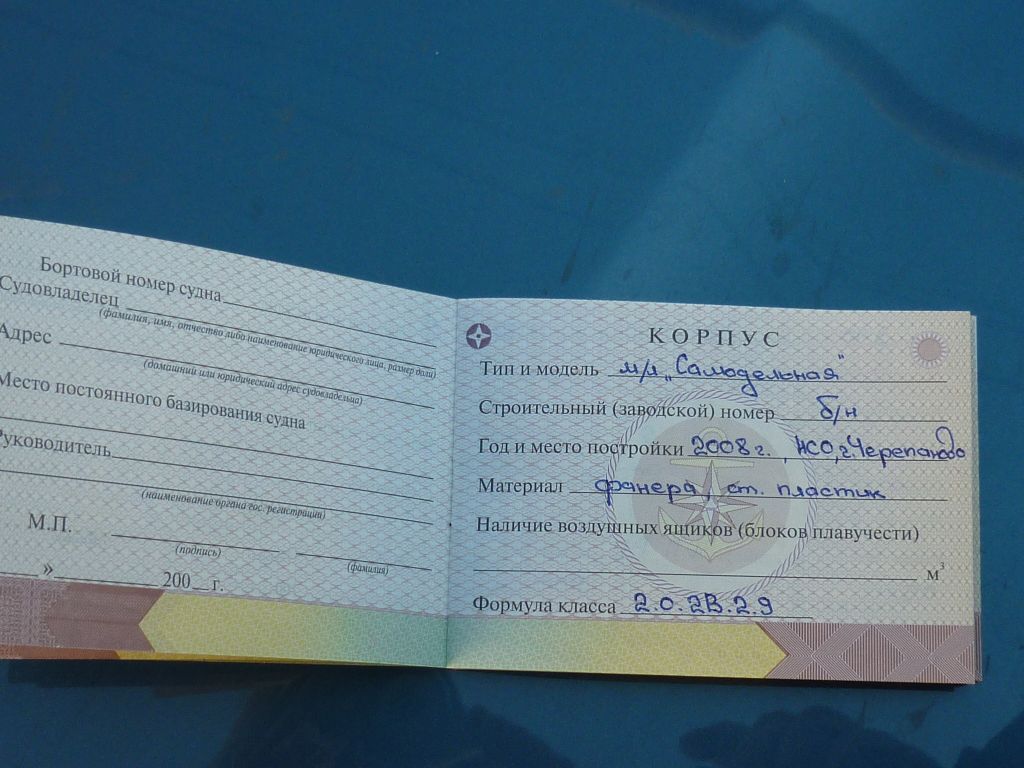 Бортовой номер судна
Судовладелец
(фамилия, имя, отчество либо наименование юридического лица, размер доли)
Адрес
(домашний или юридический адрес судовладельца)
Место постоянного базирования судна
Руководитель
(наименование органа гос. регистрации)
М.П.
(подпись) (фамилия)
» 200 г.
КОРПУС
Тип и модель м/л „Самодельная"
Строительный (заводской) номер б/н
Год и место постройки 2008 г., НСО, г. Черепаново
Материал фанера, ст. пластик
Наличие воздушных ящиков (блоков плавучести)
м³
Формула класса 2.0.2В.2.9